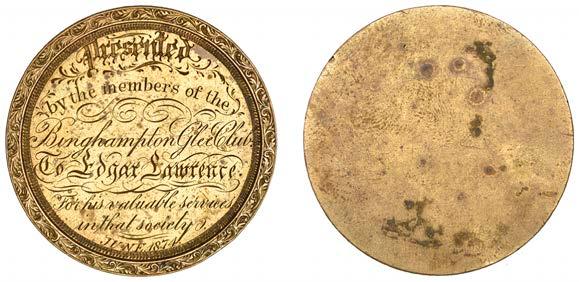 Presented
by the members of the
Binghampton Glee Club,
To Edgar Lawrence.
For his valuable services
in that society.
JUNE 1874.